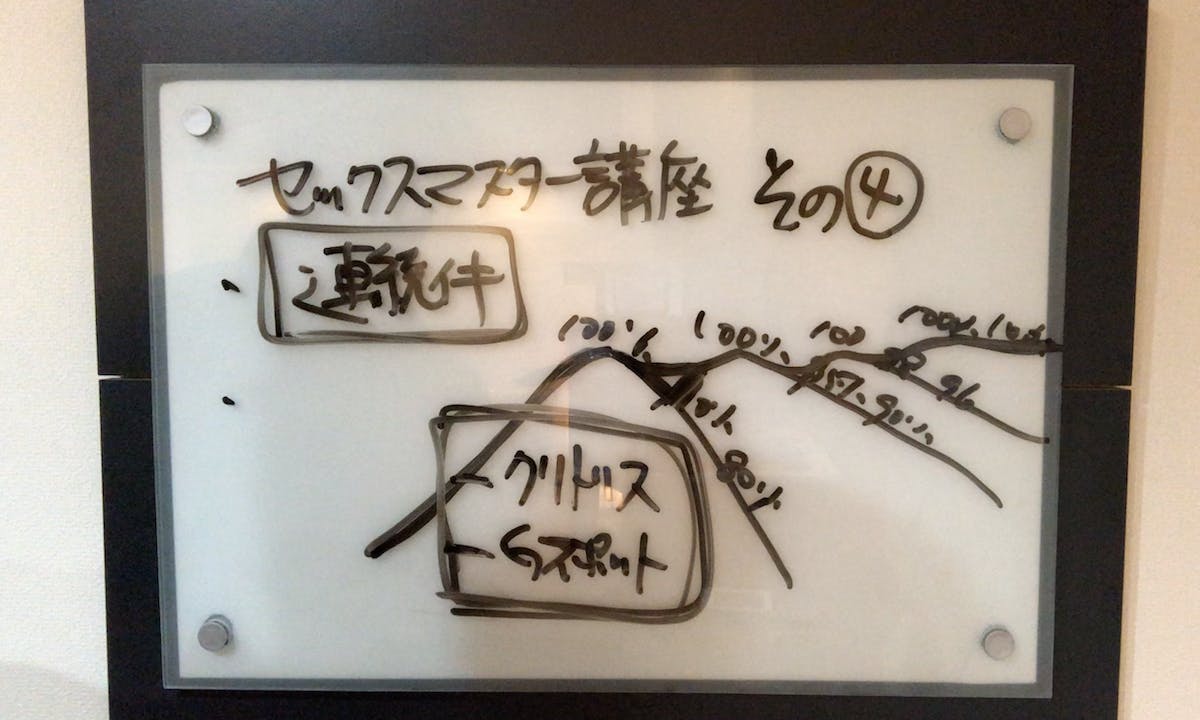 セックスマスター講座 その④
連続イキ
100% 100% 100 100% 10%
10% 95% 90% 98 96
80%
クリトリス
Gスポット